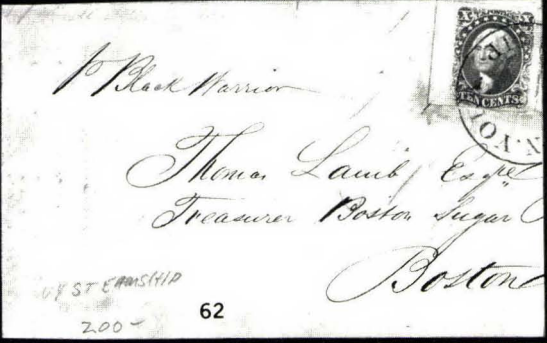 X X
TEN CENTS
N. YO
p Black Warrior
Thomas Lamb, Esqre
Treasurer Boston Sugar
Boston
STEAMSHIP
200-
62